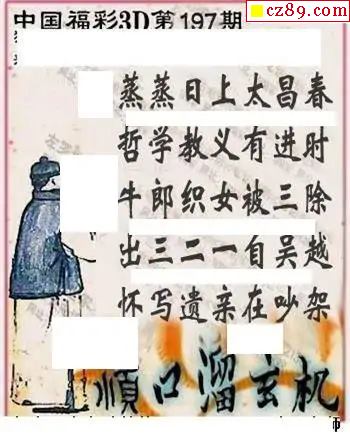 中国福彩3D第197期
cz89.com
蒸蒸日上太昌春
哲学教义有进时
牛郎织女被三除
出三二一自吴越
怀写遗亲在吵架
順口溜玄机